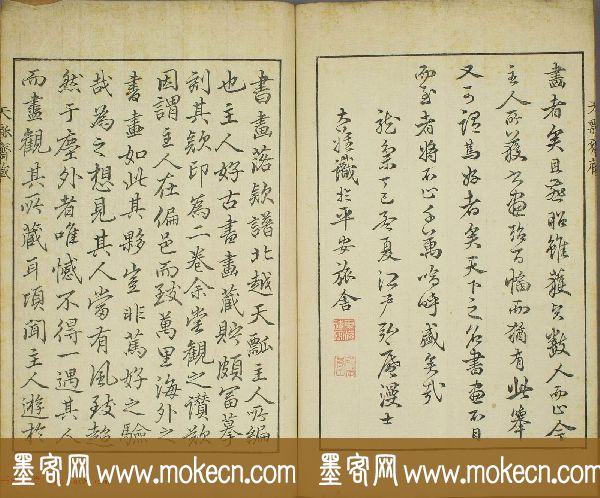 天瓢齋藏
畫者矣且雖獲數人而止
主人所蓄書畫殆百幅而猶有此舉
又可謂篤好者矣天下之名書畫不
而至者將不止千萬嗚呼盛矣哉
龍集丁巳孟夏江戶漫士
識於平安旅舍
書畫落款譜北越天瓢主人所編
也主人好古書畫藏貯頗富摹
刻其款印為二卷余嘗觀之讃歎
因謂主人在偏邑而致萬里海外之
書畫如此其夥豈非篤好之驗
哉為之想見其人當有風致超
然于塵外者唯憾不得一遇其人
而盡觀其所藏耳頃聞主人遊於
天瓢齋藏
墨客网 www.mokecn.com
墨客网 www.mokecn.com